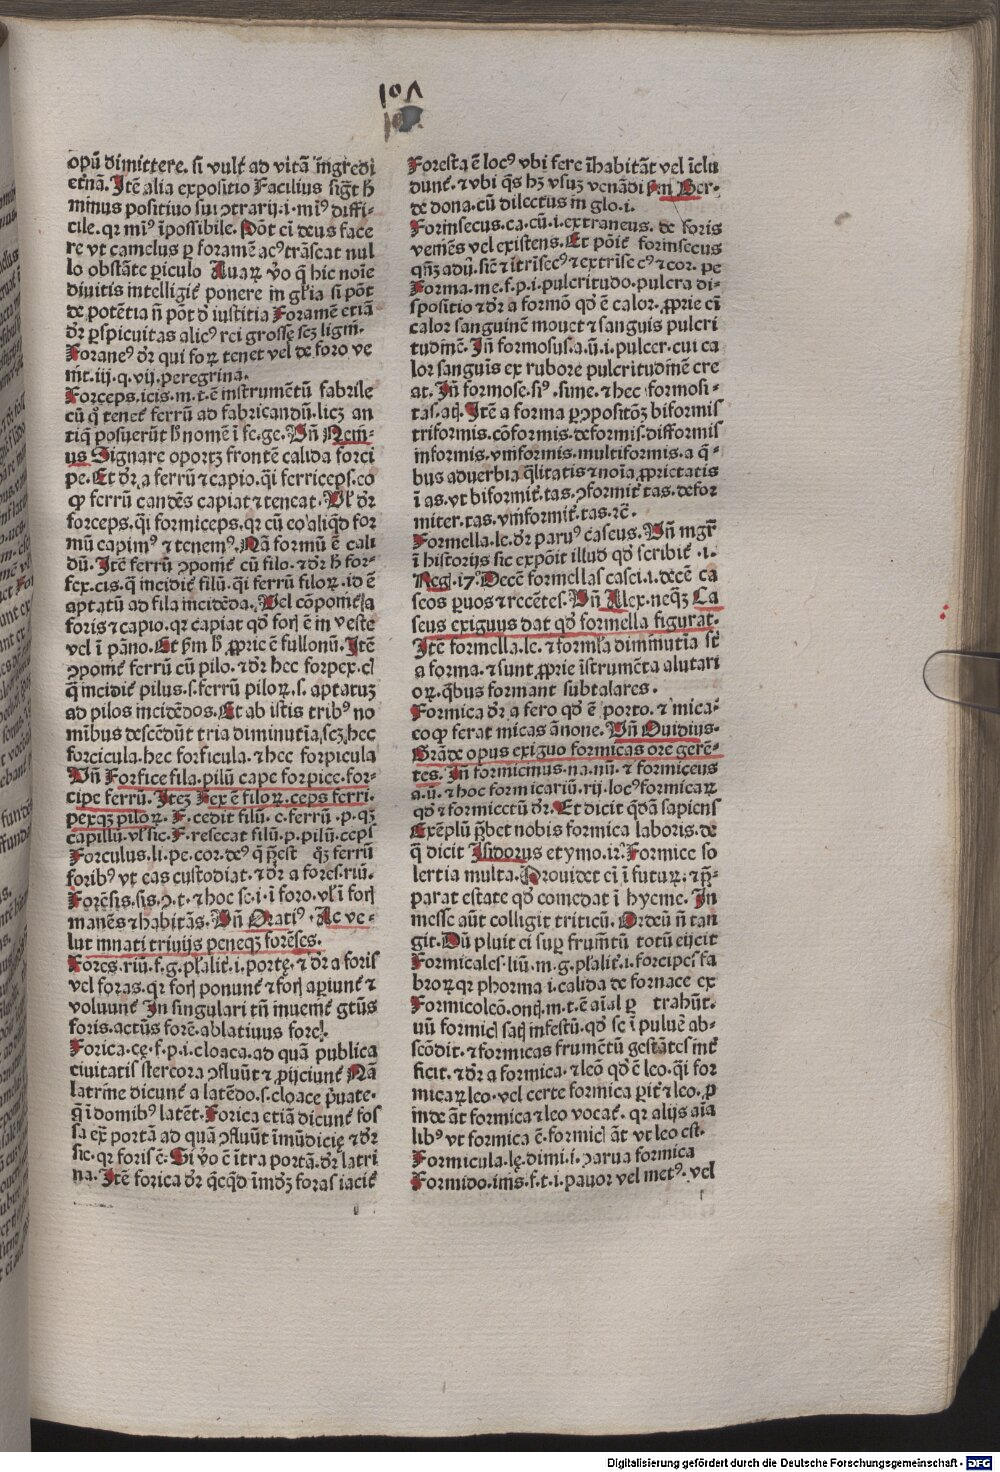 opū dimittere. si vult ad vitā īngredi
etnā. Itē alia expositio Facilius sigt h
minus positiuo sui ꝯtrarij .i. miꝰ diffi-
cile. qr miꝰ īpossibile. Pōt ei deus face
re vt camelus p foramē acꝰ trāseat nul
lo obstāte piculo Auaꝝ ꝟo q̄ hic noīe
diuitis intelligit ponere in gl'ia si pōt
de potētia n̄ pōt ꝺ iustitia Foramē etiā
dr̄ pspicuitas alicꝰ rei grosse scꝫ ligni.
Foraneꝰ dr̄ qui foꝝ tenet vel de foro ve
nit. iij. q. vij. peregrina.
Forceps. icis. m. t. ē instrumētū fabrile
cū q̇ tenet ferrū ad fabricandū. licꝫ an
tiq̇ posuerūt h nomē ī fe. ge. Vn̄ Nemi-
us Signare oportꝫ frontē calida forci
pe. Et dr̄ a ferrū ⁊ capio. q̇i ferriceps. eo
ꝙ ferrū candēs capiat ⁊ teneat. Vl' dr̄
forceps. q̇i formiceps. qr cū eo aliq̇d for
mū capimꝰ ⁊ tenemꝰ. Nā formū ē cali
dū. Itē ferrū ꝯponit cū filo. ⁊ dr̄ h for-
fex. cis. q̇ incidit filū. q̇i ferrū filoꝝ. id ē
aptatū ad fila incidēda. Vel cōponit a
foris ⁊ capio. qr capiat qd foris ē in veste
vel ī pāno. Et sm h ꝓprie ē fullonū. Itē
ꝯponit ferrū cū pilo. ⁊ dr̄ hec forpex. cis
q̄ incidit pilus. s. ferrū piloꝝ. s. aptatuꝫ
ad pilos incidēdos. Et ab istis tribꝰ no
mibus descēdūt tria diminutia, scꝫ hec
forcicula. hec forficula. ⁊ hec forpicula
Vn̄ Forfice fila. pilū cape forpice. for-
cipe ferrū. Iteꝫ Fex ē filoꝝ. ceps ferri.
pexqꝫ piloꝝ. F. cedit filū. c. ferrū. p. qꝫ
capillū. vl' sic. F. resecat filū. p. pilū. ceps
Forculus. li. pe. cor. deꝰ q̇ p̄est qꝫ ferrū
foribꝰ vt eas custodiat. ⁊ dr̄ a fores. riū.
Forēsis. sis. ꝯ. t. ⁊ hoc se. i. ī foro. vl' ī foris
manēs ⁊ habitās. Vn̄ Oratiꝰ. Ac ve-
lut innati triuijs peneqꝫ forēses.
Fores. riū. f. g. plalit. i. portę. ⁊ dr̄ a foris
vel foras. qr foris ponunt ⁊ foris apiunt ⁊
voluunt In singulari tn̄ inuenit gtūs
foris. actūs forē. ablatiuus fore.
Forica. cę. f. p. i. cloaca. ad quā publica
ciuitatis stercora ꝯfluūt ⁊ ꝓijciunt Nā
latrine dicunt a latēdo. s. cloace p̄uate.
q̄ ī domibꝰ latēt. Forica etiā dicunt fos
sa ex portā ad quā ꝯfluūt īmūdicię ⁊ dr̄
sic. qr foris ē. Si ꝟo ē itra portā. dr̄ latri
na. Itē forica dr̄ q̇cq̇d īmūdꝫ foras iacit
Foresta ē locꝰ vbi fere īhabitāt vel īclu
dunt. ⁊ vbi q̇s hꝫ vsuꝫ venādi sm Ber-
de dona. cū dilectus in glo. i.
Forinsecus. ca. cū. i. extraneus. de foris
veniēs vel existens. Et pōit forinsecus
qn̄qꝫ adū. sic ⁊ ītrīsecꝰ ⁊ extrīsecꝰ ⁊ cor. pe
Forma. me. f. p. i. pulcritudo. pulcra di-
spositio ⁊ dr̄ a formō qd ē calor. ꝓprie ei
calor sanguinē mouet ⁊ sanguis pulcri
tudinē. In̄ formosus. a. ū. i. pulcer. cui ca
lor sanguis ex rubore pulcritudinē cre
at. In̄ formose. siꝰ. sime. ⁊ hec formosi-
tas. atis. Itē a forma pꝯpositōꝫ biformis
triformis. cōformis. deformis. difformis
informis. vniformis. multiformis. a q̇-
bus aduerbia q̄litatis ⁊ noīa ꝓprietatis
ī as. vt biformit. tas. ꝯformit tas. defor
miter. tas. vniformit. tas. ⁊c.
Formella. le. dr̄ paruꝰ caseus. Vn̄ mgr̄
ī historijs sic expōit illud qd scribit .i.
Reg. 17. Decē formellas casei. i. decē ca
seos puos ⁊ recētes. Vn̄ Alex. neqꝫ Ca
seus exiguus dat qd formella figurat.
Itē formella. le. ⁊ forml'a diminutia st
a forma. ⁊ sunt ꝓprie īstrumēta alutari
oꝝ. q̇bus formant subtalares.
Formica dr̄ a fero qd ē porto. ⁊ mica.
eo ꝙ ferat micas anone. Vn̄ Ouidius.
Grāde opus exiguo formicas ore gerē-
tes. In̄ formicinus. na. nū. ⁊ formiceus
a. ū. ⁊ hoc formicariū. rij. locꝰ formicaꝝ
qd ⁊ formicetū dr̄. Et dicit q̇dā sapiens
Exēplū p̄bet nobis formica laboris. de
q̄ dicit Isidorus etymo. Formice so
lertia multa. Prouidet ei ī futuꝝ. ⁊ p̄-
parat estate qd comedat ī hyeme. In
messe aūt colligit triticū. Ordeū n̄ tan
git. Dū pluit ei sup frumtū totū eijcit
Formicales. liū. m. g. plalit. i. forcipes fa
broꝝ qr phorma i. calida de fornace ex
Formicoleō. onis. m. t. ē aīal p trahūt.
uū formicis satis infestū. qd se ī puluē ab-
scōdit. ⁊ formicas frumētū gestātes int
ficit. ⁊ dr̄ a formica. ⁊ leō qd ē leo. q̇i for
micaꝝ leo. vel certe formica pit ⁊ leo. ꝓ
inde āt formica ⁊ leo vocat. qr alijs aīa
libꝰ vt formica ē. formicis āt vt leo est.
Formicula. lę. dimi. i. parua formica
Formido. inis. f. t. i. pauor vel metꝰ. vel